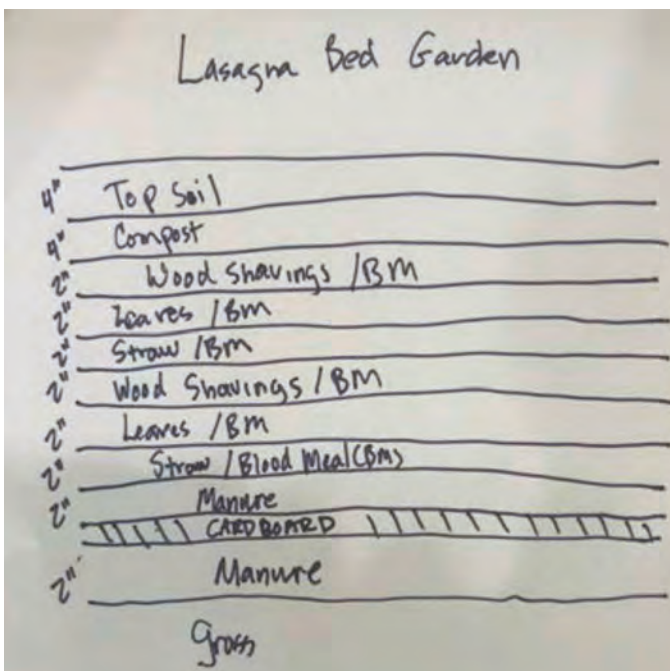 Lasagna Bed Garden
4" Top Soil
4" Compost
2" Wood Shavings /BM
2" Leaves /BM
2" Straw /BM
2" Wood Shavings /BM
2" Leaves /BM
2" Straw /Blood Meal(BM)
2" Manure
CARDBOARD
2" Manure
grass